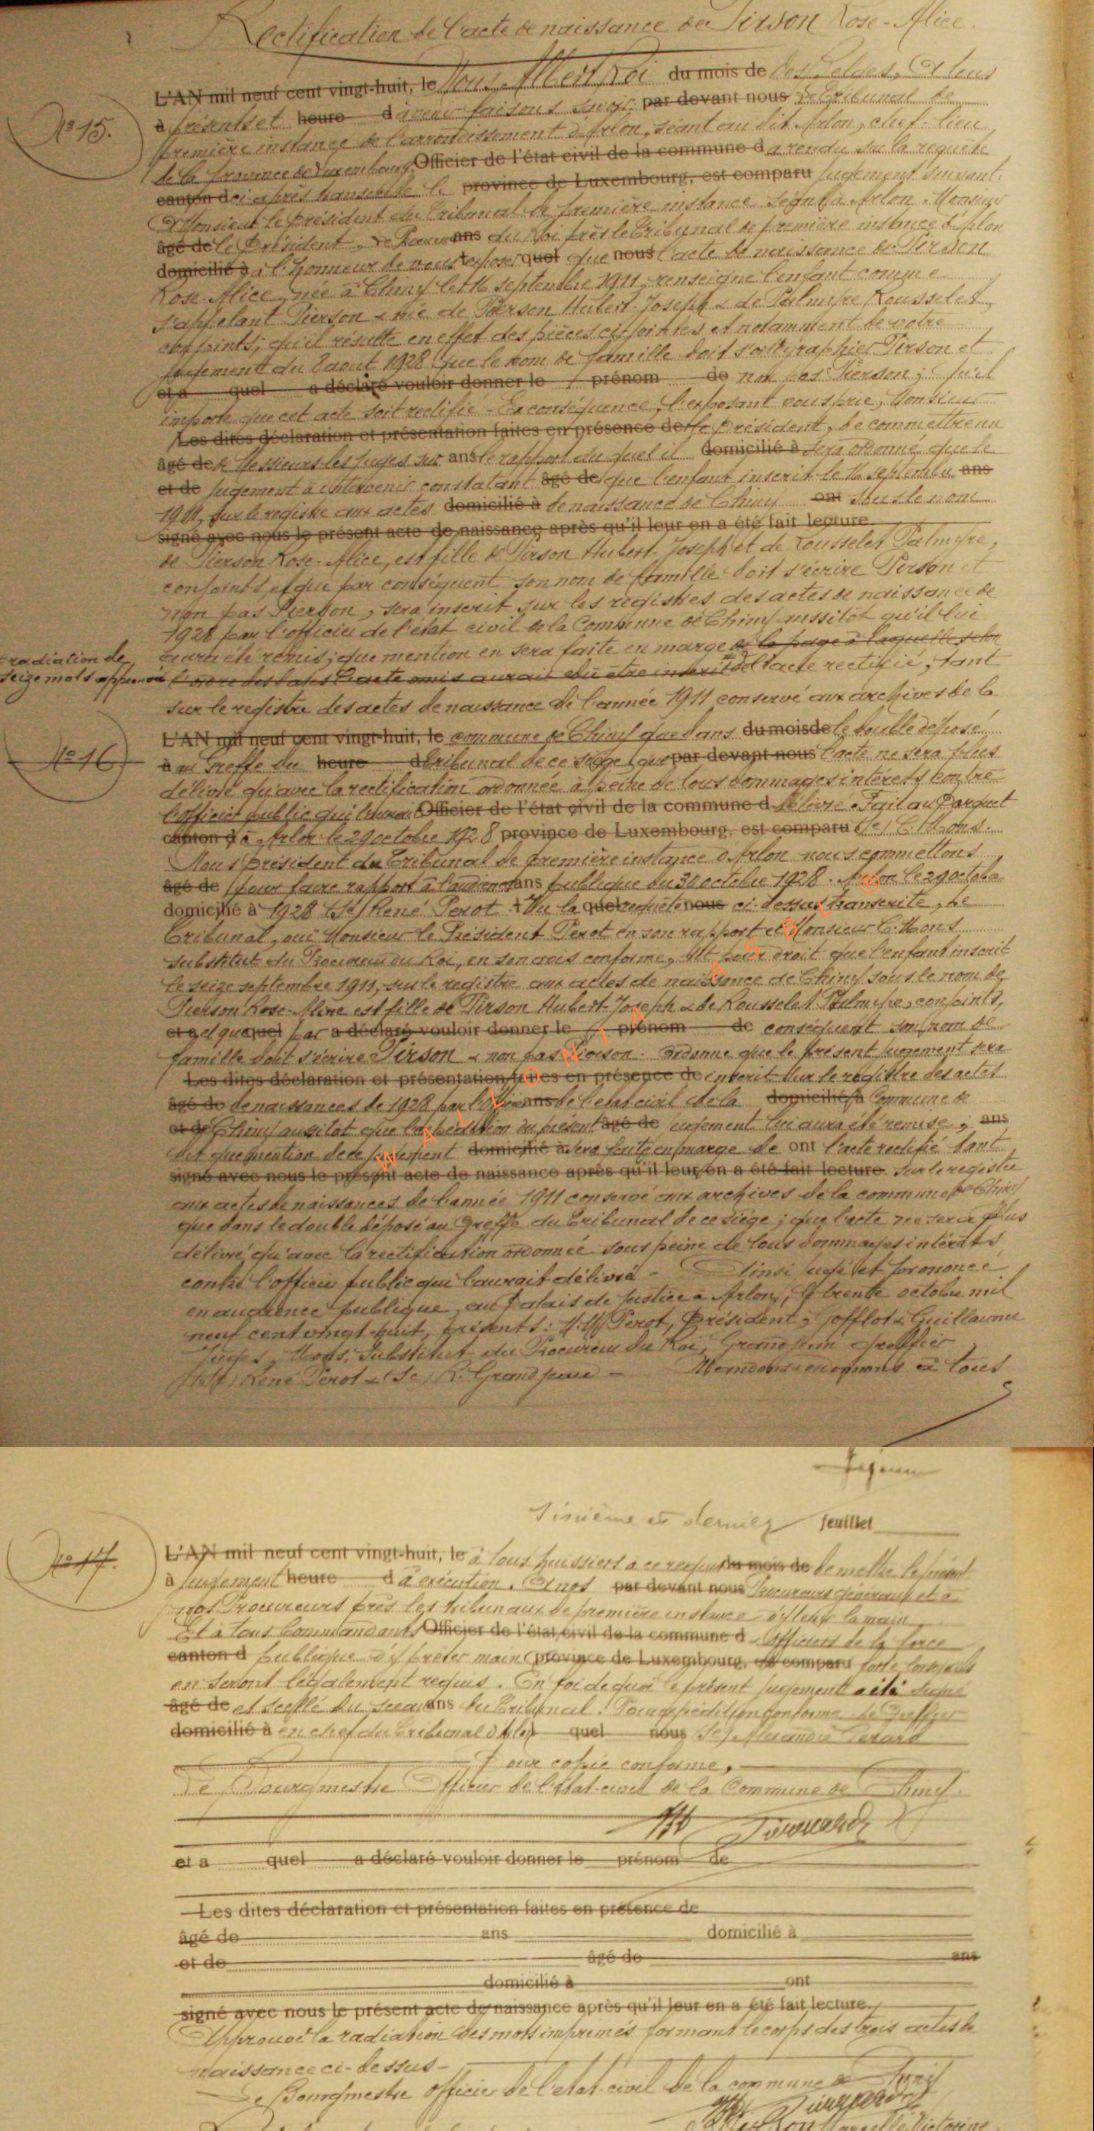 Rectification de l'acte de naissance de Pirson Rose-Alice.
L'AN mil neuf cent vingt-huit, le Nous Albert Roi du mois de des Belges, A tous
N° 15.
à présents et heure d à venir faisons savoir: par devant nous Le Tribunal de
première instance de l'arrondissement d'Arlon, séant au dit Arlon, chef-lieu
de la province de Luxembourg, Officier de l'état civil de la commune d a rendu sur la requête
canton d ci-après transcrite le province de Luxembourg, est comparu jugement suivant:
A Monsieur le Président du Tribunal de première instance séant à Arlon. Monsieur
âgé de le Président, Le Procureur ans du Roi près le Tribunal de première instance d'Arlon
domicilié à a l'honneur de vous exposer quel que nous l'acte de naissance de Pirson
Rose-Alice, née à Chiny le 16 septembre 1911, renseigne l'enfant comme
s'appelant Pierson & née de Pierson Hubert-Joseph & de Palmyre Rousselet,
conjoints; qu'il résulte en effet des pièces ci-jointes et notamment de votre
jugement du 8 août 1928 que le nom de famille doit s'orthographier Pirson et
et a quel a déclaré vouloir donner le prénom de non pas Pierson; qu'il
importe que cet acte soit rectifié - En conséquence, l'exposant vous prie, Monsieur
Les dites déclaration et présentation faites en présence de le Président, de commettre un
âgé de de Messieurs les Juges sur ans le rapport du quel il domicilié à sera ordonné que le
et de jugement à intervenir constatant âgé de que l'enfant inscrit le 16 septembre ans
1911, sur le registre aux actes domicilié à de naissance de Chiny ont sous le nom
signé avec nous le présent acte de naissance après qu'il leur en a été fait lecture.
de Pierson Rose-Alice, est fille de Pirson Hubert-Joseph et de Rousselet Palmyre,
conjoints, et que par conséquent son nom de famille doit s'écrire Pirson et
non pas Pierson, sera inscrit sur les registres des actes de naissance de
1928 par l'officier de l'état civil de la Commune de Chiny aussitôt qu'il lui
aura été remis; que mention en sera faite en marge de la page à laquelle selon
radiation de
seize mots approuvée
l'ordre des dates l'acte omis aurait dû être inscrit de l'acte rectifié; tant
sur le registre des actes de naissance de l'année 1911 conservé aux archives de la
N° 16
L'AN mil neuf cent vingt-huit, le commune de Chiny que dans du mois de le double déposé
à au Greffe du heure d Tribunal de ce siège; que par devant nous l'acte ne sera plus
délivré qu'avec la rectification ordonnée à peine de tous dommages intérêts contre
l'officier public qui l'aurait Officier de l'état civil de la commune d délivré. Fait au Parquet
canton d à Arlon le 29 octobre 1928 province de Luxembourg, est comparu (Sé) C. Hons.
Nous président du Tribunal de première instance d'Arlon nous commettons
âgé de pour faire rapport à l'audience ans publique du 30 octobre 1928. Arlon le 29 octobre
domicilié à 1928 (Sé) René Perot + Vu la quel requête nous ci-dessus transcrite, Le
Tribunal, oui Monsieur le Président Perot en son rapport et Monsieur C. Hons
substitut du Procureur du Roi, en son avis conforme, dit pour droit que l'enfant inscrit
le seize septembre 1911, sur le registre aux actes de naissance de Chiny sous le nom de
Pierson Rose-Aline est fille de Pirson Hubert-Joseph & de Rousselet Palmyre, conjoints,
et a et que quel par a déclaré vouloir donner le prénom de conséquent son nom de
famille doit s'écrire Pirson & non pas Pierson. Ordonne que le présent jugement sera
Les dites déclaration et présentation faites en présence de inscrit sur le registre des actes
âgé de de naissances de 1928 par l'officier ans de l'état civil de la domicilié à Commune de
et de Chiny aussitôt que l'expédition du présent âgé de jugement lui aura été remise; ans
dit que mention de ce jugement domicilié à sera faite en marge de ont l'acte rectifié tant
signé avec nous le présent acte de naissance après qu'il leur en a été fait lecture. sur le registre
aux actes de naissances de l'année 1911 conservé aux archives de la commune de Chiny
que dans le double déposé au Greffe du Tribunal de ce siège; que l'acte ne sera plus
délivré qu'avec la rectification ordonnée sous peine de tous dommages intérêts
contre l'officier public qui l'aurait délivré - Ainsi jugé et prononcé
en audience publique, au Palais de Justice à Arlon, le trente octobre mil
neuf cent vingt-huit, présents: M.M. Perot, Président, Gofflot & Guillaume
Juges, Hons, Substitut du Procureur du Roi, Grandjean Greffier
(Sé) René Perot & (Sé) R. Grandjean - Mandons & ordonnons à tous
Sixième et dernier feuillet
N° 17.
L'AN mil neuf cent vingt-huit, le à tous huissiers à ce requis du mois de de mettre le présent
à jugement heure d à exécution. A nos par devant nous Procureurs généraux et à
nos Procureurs près les tribunaux de première instance d'y tenir la main
Et à tous Commandants Officier de l'état civil de la commune d & Officiers de la force
canton d publique d'y prêter main province de Luxembourg, est comparu forte lorsqu'ils
en seront légalement requis. En foi de quoi le présent jugement a été signé
âgé de et scellé du sceau ans du Tribunal. Pour expédition conforme Le Greffier
domicilié à en chef du Tribunal d'Arlon quel nous (Sé) Alexandre Gérard
Pour copie conforme,
Le Bourgmestre Officier de l'état-civil de la Commune de Chiny.
et a quel a déclaré vouloir donner le prénom de
Les dites déclaration et présentation faites en présence de
âgé de ans domicilié à
et de âgé de ans
domicilié à ont
signé avec nous le présent acte de naissance après qu'il leur en a été fait lecture.
Approuvé la radiation des mots imprimés formant le corps des trois actes de
naissance ci-dessus -
Le Bourgmestre officier de l'état-civil de la commune de Chiny